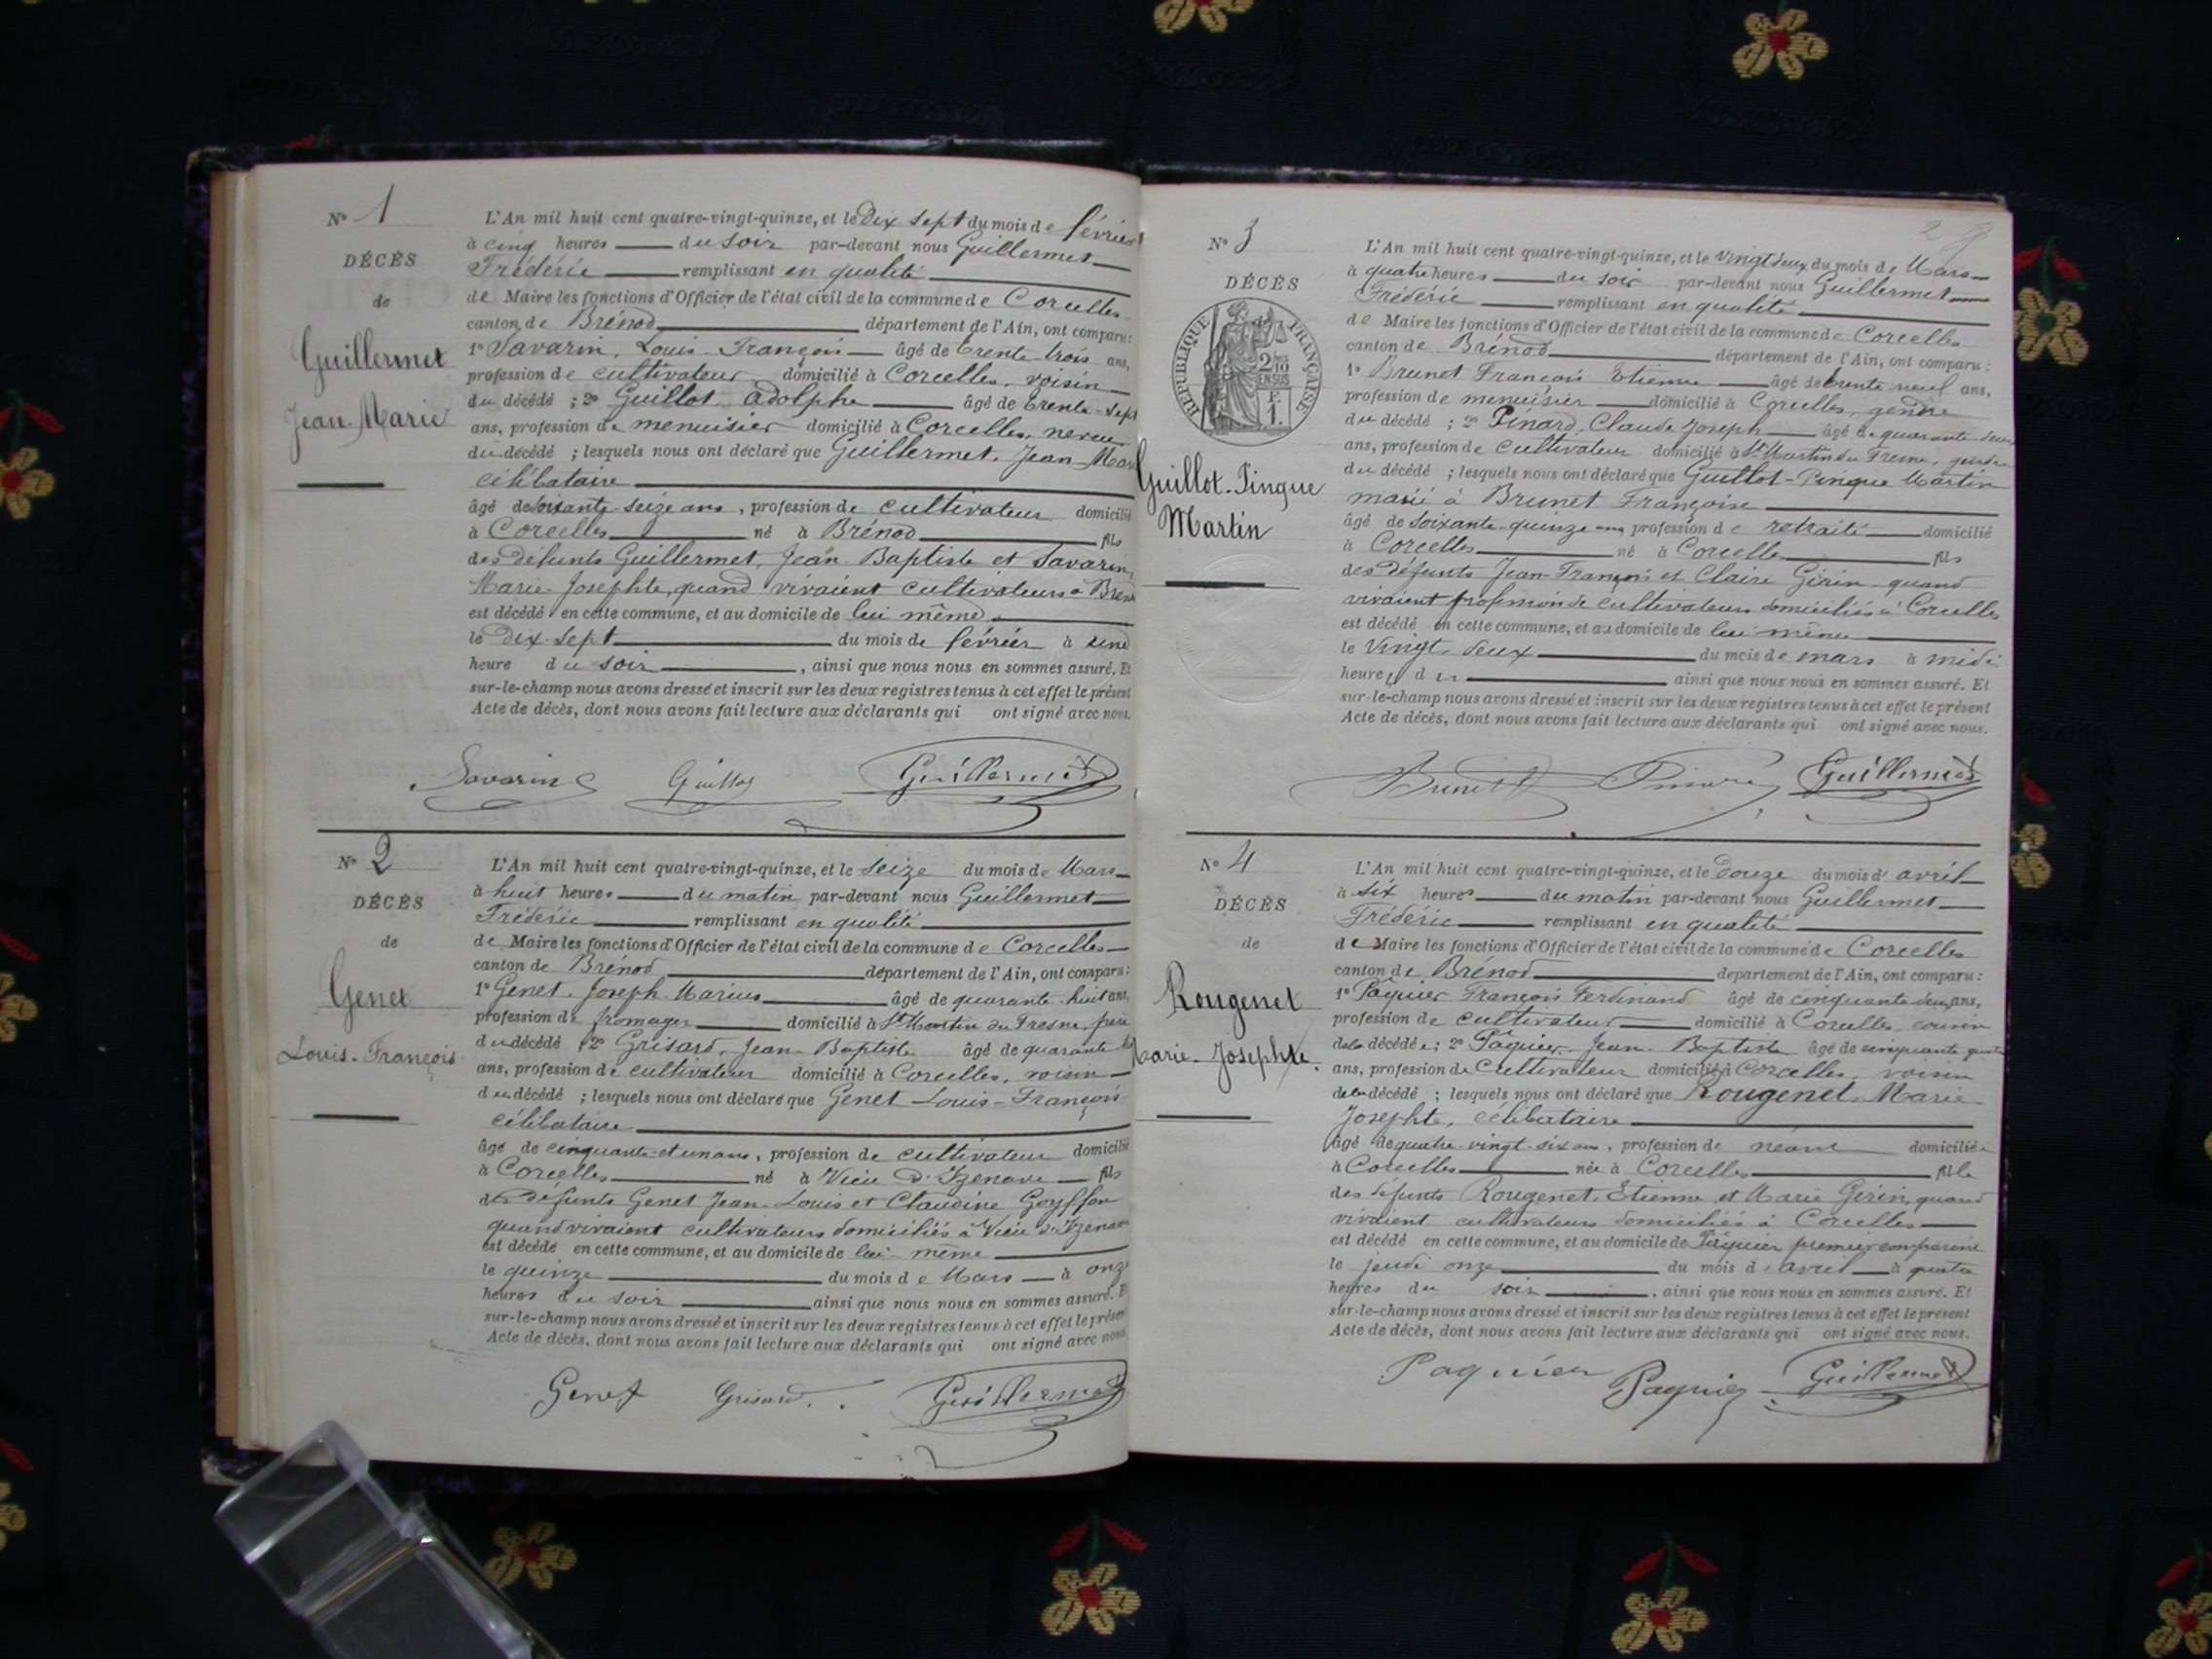 N° 1
DÉCÈS
de
Guillermet
Jean Marie
L'An mil huit cent quatre-vingt-quinze, et le Dix Sept du mois de février
à cinq heures du soir par-devant nous Guillermet
Frédéric remplissant en qualité
de Maire les fonctions d'Officier de l'état civil de la commune de Corcelles
canton de Brénod département de l'Ain, ont comparu:
1° Savarin, Louis-François âgé de trente trois ans,
profession de cultivateur domicilié à Corcelles, voisin
du décédé ; 2° Guillot, Adolphe âgé de trente-sept
ans, profession de menuisier domicilié à Corcelles, neveu
du décédé ; lesquels nous ont déclaré que Guillermet, Jean Marie
célibataire
âgé de soixante-seize ans, profession de cultivateur domicilié
à Corcelles né à Brénod fils
des défunts Guillermet, Jean Baptiste et Savarin,
Marie-Josephte, quand vivaient cultivateurs à Brénod
est décédé en cette commune, et au domicile de lui même
le dix-sept du mois de février à une
heure du soir, ainsi que nous nous en sommes assuré. Et
sur-le-champ nous avons dressé et inscrit sur les deux registres tenus à cet effet le présent
Acte de décès, dont nous avons fait lecture aux déclarants qui ont signé avec nous.
Savarin Guillot Guillermet
N° 2
DÉCÈS
de
Genet
Louis-François
L'An mil huit cent quatre-vingt-quinze, et le seize du mois de Mars
à huit heures du matin par-devant nous Guillermet
Frédéric remplissant en qualité
de Maire les fonctions d'Officier de l'état civil de la commune de Corcelles
canton de Brénod département de l'Ain, ont comparu:
1° Genet, Joseph Marius âgé de quarante-huit ans,
profession de fromager domicilié à St Martin du Fresne, frère
du décédé ; 2° Grisard, Jean-Baptiste âgé de quarante
ans, profession de cultivateur domicilié à Corcelles, voisin
du décédé ; lesquels nous ont déclaré que Genet Louis-François
célibataire
âgé de cinquante-et un ans, profession de cultivateur domicilié
à Corcelles né à Vieu d'Izenave fils
des défunts Genet Jean-Louis et Claudine Goyffon
quand vivaient cultivateurs domiciliés à Vieu d'Izenave
est décédé en cette commune, et au domicile de lui-même
le quinze du mois de Mars à onze
heures du soir ainsi que nous nous en sommes assuré. Et
sur-le-champ nous avons dressé et inscrit sur les deux registres tenus à cet effet le présent
Acte de décès, dont nous avons fait lecture aux déclarants qui ont signé avec nous
Genet Grisard. Guillermet
N° 3
DÉCÈS
RÉPUBLIQUE FRANÇAISE
2/10 EN SUS
F. 1.
Guillot-Pingue
Martin
L'An mil huit cent quatre-vingt-quinze, et le vingt deux du mois de Mars
à quatre heures du soir par-devant nous Guillermet
Frédéric remplissant en qualité
de Maire les fonctions d'Officier de l'état civil de la commune de Corcelles
canton de Brénod département de l'Ain, ont comparu:
1° Brunet François Etienne âgé de trente neuf ans,
profession de menuisier domicilié à Corcelles, gendre
du décédé ; 2° Pinard, Claude Joseph âgé de quarante deux
ans, profession de cultivateur domicilié à St Martin du Fresne, gendre
du décédé ; lesquels nous ont déclaré que Guillot-Pingue Martin
marié à Brunet Françoise
âgé de soixante-quinze ans profession de retraité domicilié
à Corcelles né à Corcelles fils
des défunts Jean-François et Claire Girin quand
vivaient profession de cultivateurs domiciliés à Corcelles
est décédé en cette commune, et au domicile de lui même
le vingt-deux du mois de mars à midi
heure, du ainsi que nous nous en sommes assuré. Et
sur-le-champ nous avons dressé et inscrit sur les deux registres tenus à cet effet le présent
Acte de décès, dont nous avons fait lecture aux déclarants qui ont signé avec nous.
Brunet Pinard Guillermet
N° 4
DÉCÈS
de
Rougenet
Marie-Josephte.
L'An mil huit cent quatre-vingt-quinze, et le Douze du mois d'avril
à six heures du matin par-devant nous Guillermet
Frédéric remplissant en qualité
de Maire les fonctions d'Officier de l'état civil de la commune de Corcelles
canton de Brénod département de l'Ain, ont comparu:
1° Pâquier François Ferdinand âgé de cinquante deux ans,
profession de cultivateur domicilié à Corcelles, cousin
de la décédée; 2° Pâquier, Jean-Baptiste âgé de cinquante quatre
ans, profession de Cultivateur domicilié à Corcelles, voisin
de la décédé ; lesquels nous ont déclaré que Rougenet Marie
Josephte, célibataire
âgé de quatre-vingt-six ans, profession de néant domiciliée
à Corcelles née à Corcelles fille
des défunts Rougenet, Etienne et Marie Girin, quand
vivaient cultivateurs domiciliés à Corcelles
est décédé en cette commune, et au domicile de Pâquier premier comparant
le jeudi onze du mois d'avril à quatre
heures du soir, ainsi que nous nous en sommes assuré. Et
sur-le-champ nous avons dressé et inscrit sur les deux registres tenus à cet effet le présent
Acte de décès, dont nous avons fait lecture aux déclarants qui ont signé avec nous.
Paquier Paquier Guillermet